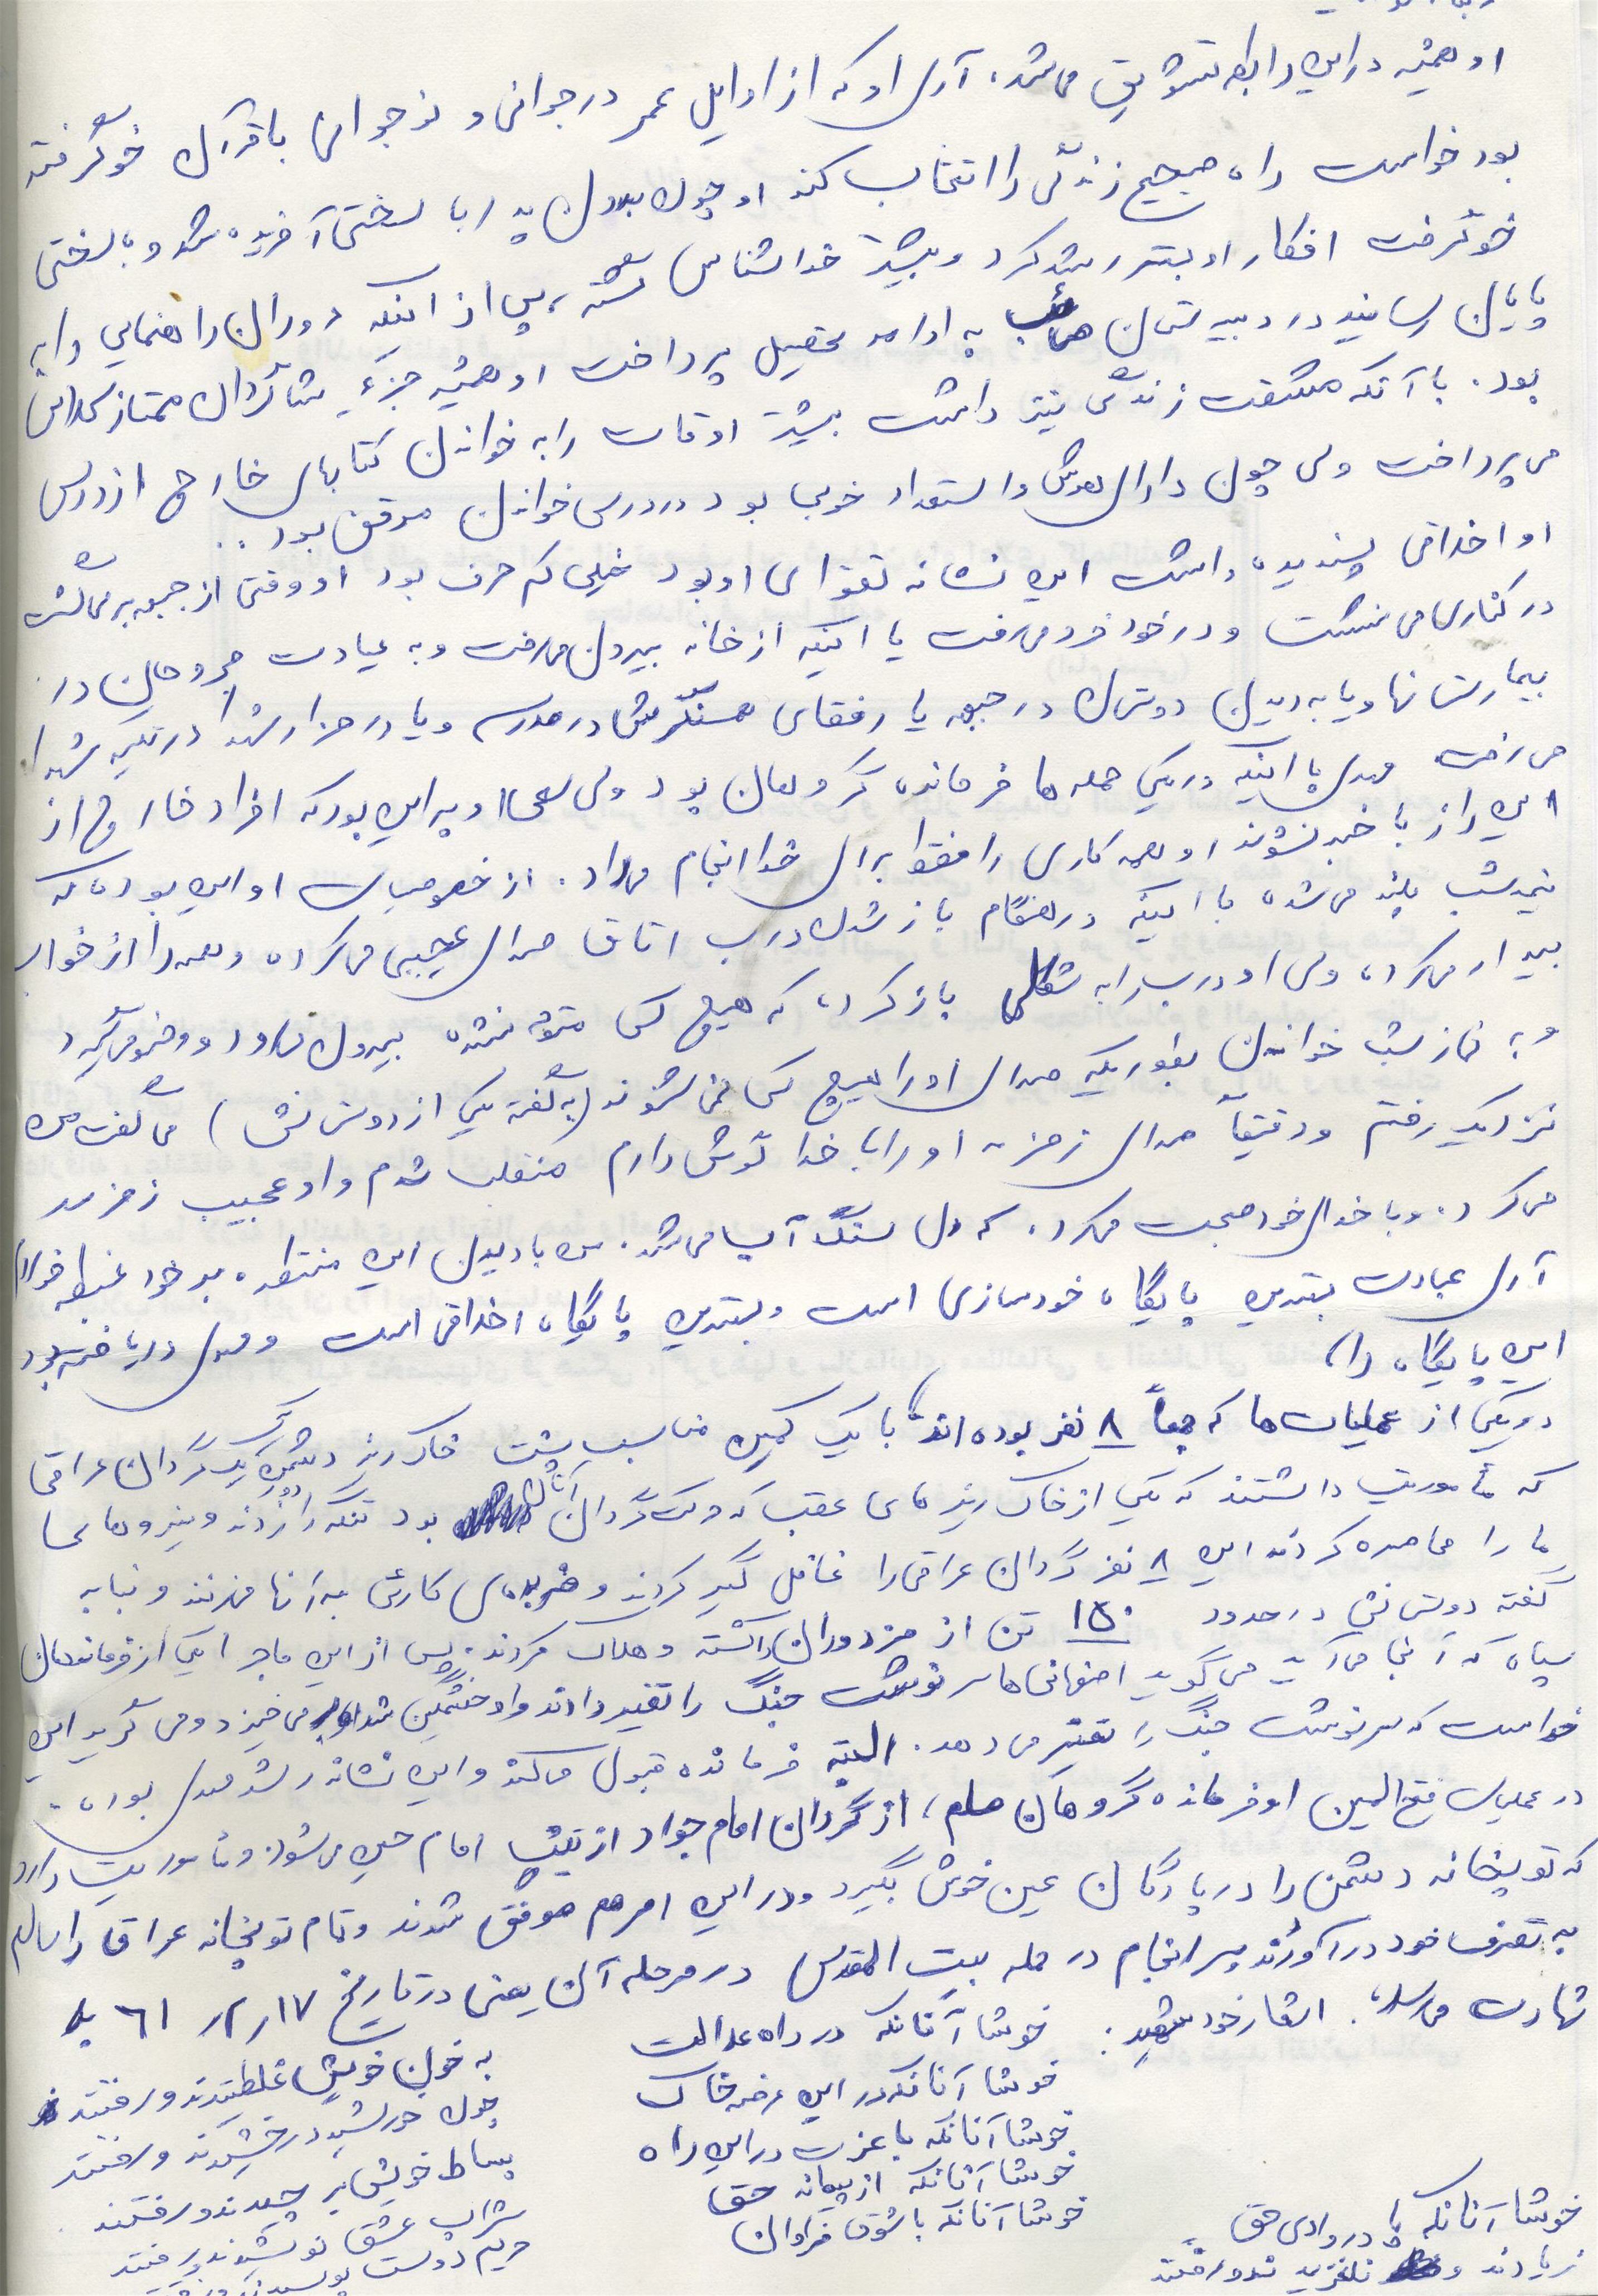 او همیشه در این رابطه تشویق می‌شد. آری او که از اوایل عمر در جوانی و نوجوانی با قرآن خو گرفته
بود خواست راه صحیح زندگی را انتخاب کند او چون بدون پدر با سختی آفریده شد و با سختی
خو گرفت افکار او بهتر رشد کرد و بیشتر خداشناس گشته، پس از اینکه دوران راهنمایی را به
پایان رسانید در دبیرستان به ادامه تحصیل پرداخت او همیشه جزء شاگردان ممتاز کلاس
بود. با آنکه مشقت زندگی نیز داشت بیشتر اوقات را به خواندن کتابهای خارج از درس
می‌پرداخت ولی چون دارای هوش و استعداد خوبی بود در درس خواندن موفق بود..
او اخلاقی پسندیده داشت این نشانه تقوای او بود خیلی کم حرف بود او وقتی از جبهه برمی‌گشت
در کناری می‌نشست و در خود فرو می‌رفت یا اینکه از خانه بیرون می‌رفت و به عیادت مجروحان در
بیمارستانها و یا به دیدن دوستان در جبهه یا رفقای همسنگرش در مدرسه و یا در مزار شهدا در تکیه شهدا
می‌رفت مهدی با اینکه در یکی حمله‌ها فرمانده گروهان بود ولی سعی او بر این بود که افراد خارج از
این راز با خبر نشوند او همه کاری را فقط برای خدا انجام می‌داد. از خصوصیات او این بوده که
نیمه شب بلند می‌شده با اینکه در هنگام باز شدن درب اتاق صدای عجیبی می‌کرده و همه را از خواب
بیدار می‌کرده ولی او درب را به شکلی باز کرده که هیچ کس متوجه نشده بیرون می‌رود و وضو می‌گیرد
و به نماز شب خواندن بطوریکه صدای او را هیچ کس نمی‌شنود (به گفته یکی از دوستانش) می‌گفت من
نزدیک رفتم و دقیقاً صدای زمزمه او را با خدا گوش دارم منقلب شدم و او عجیب زمزمه
می‌کرد. و با خدای خود صحبت میکرد. که دل سنگ آب می‌شد. من با دیدن این منظره بر خود غبطه خوردم
آری عبادت بهترین پایگاه خودسازی است و بهترین پایگاه اخلاقی است و مهدی دریافته بود
این پایگاه را،
در یکی از عملیات‌ها که جمعاً ۸ نفر بوده‌اند با یک کمین مناسب پشت خاکریز دشمن یک گردان عراقی
که مأموریت داشتند که یکی از خاک ریزهای عقب که و یک گردان آنان بود تنگه را زدند و نیروهای
ما را محاصره کردند این ۸ نفر گردان عراقی را غافل گیر کردند و ضربه‌های کاری به آنها میزنند و بنا به
گفته دوستانش در حدود ۱۵۰ تن از مزدوران را کشته و هلاک کردند. پس از این ماجرا یکی از فرماندهان
سپاه که آنجا می‌آید می‌گوید اصفهانی‌ها سرنوشت جنگ را تغییر دادند و او خشمگین شد می‌خیزد و می‌گوید این
خداست که سرنوشت جنگ را تغییر می‌دهد. البته فرمانده قبول می‌کند و این نشانه رشد مهدی بوده.
در عملیات فتح المبین او فرمانده گروهان از گردان امام جواد از تیپ امام حسین می‌شود و مأموریت دارد
که توپخانه دشمن را در پادگان عین خوش بگیرد و در این امر هم موفق شدند و تمام توپخانه عراق را سالم
به تصرف خود در آوردند سرانجام در حمله بیت المقدس در مرحله آن یعنی در تاریخ ۱۷ ر ۲ ر ۶۱ به
شهادت می‌رسد. اشعار خود شهید:
خوشا آنانکه در راه عدالت به خون خویش غلطیدند و رفتند
خوشا آنانکه در این عرصه خاک چون خورشید درخشیدند و رفتند
خوشا آنانکه با عزت در این راه بساط خویش بر چیدند و رفتند
خوشا آنانکه از پیمانه حق شراب عشق نوشیدند و رفتند
خوشا آنانکه با شوق فراوان حریم دوست بوسیدند و رفتند
خوشا آنانکه پا در وادی حق
نهادند و نلغزیدند و رفتند